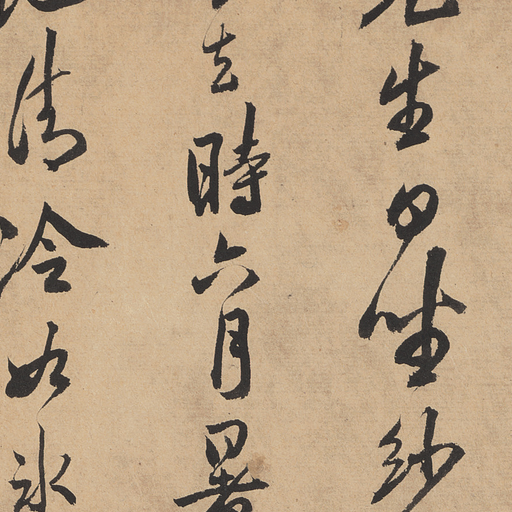 先生日坐紗
去時六月暑
清冷如冰